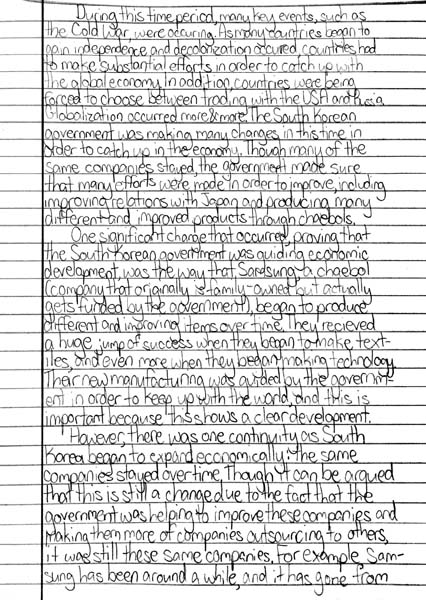 During this time period, many key events, such as
the Cold War, were occuring. As many countries began to
gain independence and decolonization occured, countries had
to make substantial efforts in order to catch up with
the global economy. In addition, countries were being
forced to choose between trading with the USA and Russia.
Globalization occurred more & more. The South Korean
government was making many changes in this time in
order to catch up in the economy. Though many of the
same companies stayed, the government made sure
that many efforts were made in order to improve, including
improving relations with Japan and producing many
different and improved products through chaebols.
One significant change that occurred, proving that
the South Korean government was guiding economic
development, was the way that Samsung - a chaebol
(company that originally is family-owned but actually
gets funded by the government), began to produce
different and improving items over time. They recieved
a huge jump of success when they began to make, text-
iles, and even more when they began making technology.
Their new manufacturing was guided by the governm-
ent in order to keep up with the world, and this is
important because this shows a clear development.
However, there was one continuity as South
Korea began to expand economically: the same
companies stayed over time. Though it can be argued
that this is still a change due to the fact that the
government was helping to improve these companies and
making them more of companies outsourcing to others,
it was still these same companies. For example Sam-
sung has been around a while, and it has gone from